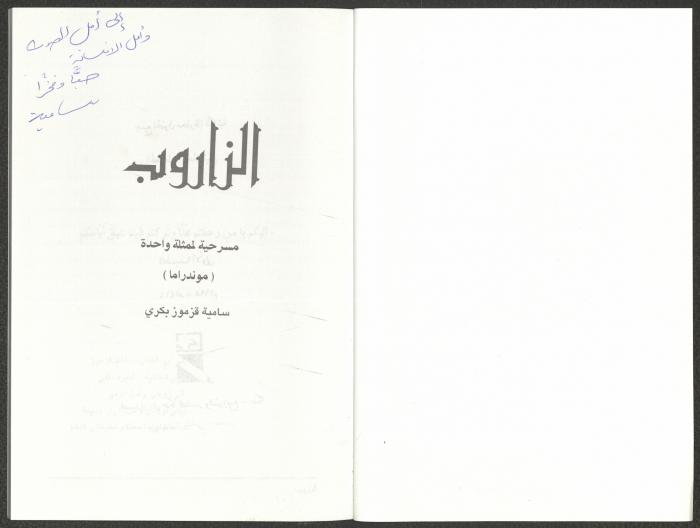 إلى أمل الصوت
وأمل الإنسانة
حبًّا وفخرًا
سامية
الزاروب
مسرحية لممثلة واحدة
( موندراما )
سامية قزموز بكري